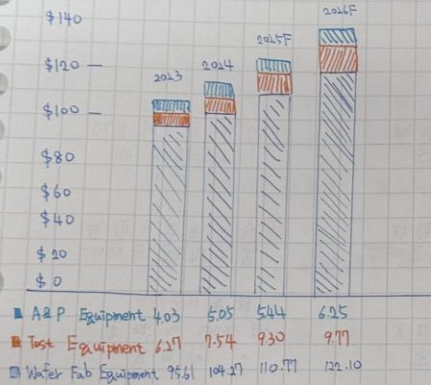 $140
2026F
2025F
$120
2024
2023
$100
$80
$60
$40
$20
$0
A&P Equipment 4.03 5.05 5.44 6.25
Test Equipment 6.27 7.54 9.30 9.77
Wafer Fab Equipment 95.61 104.27 110.77 122.10